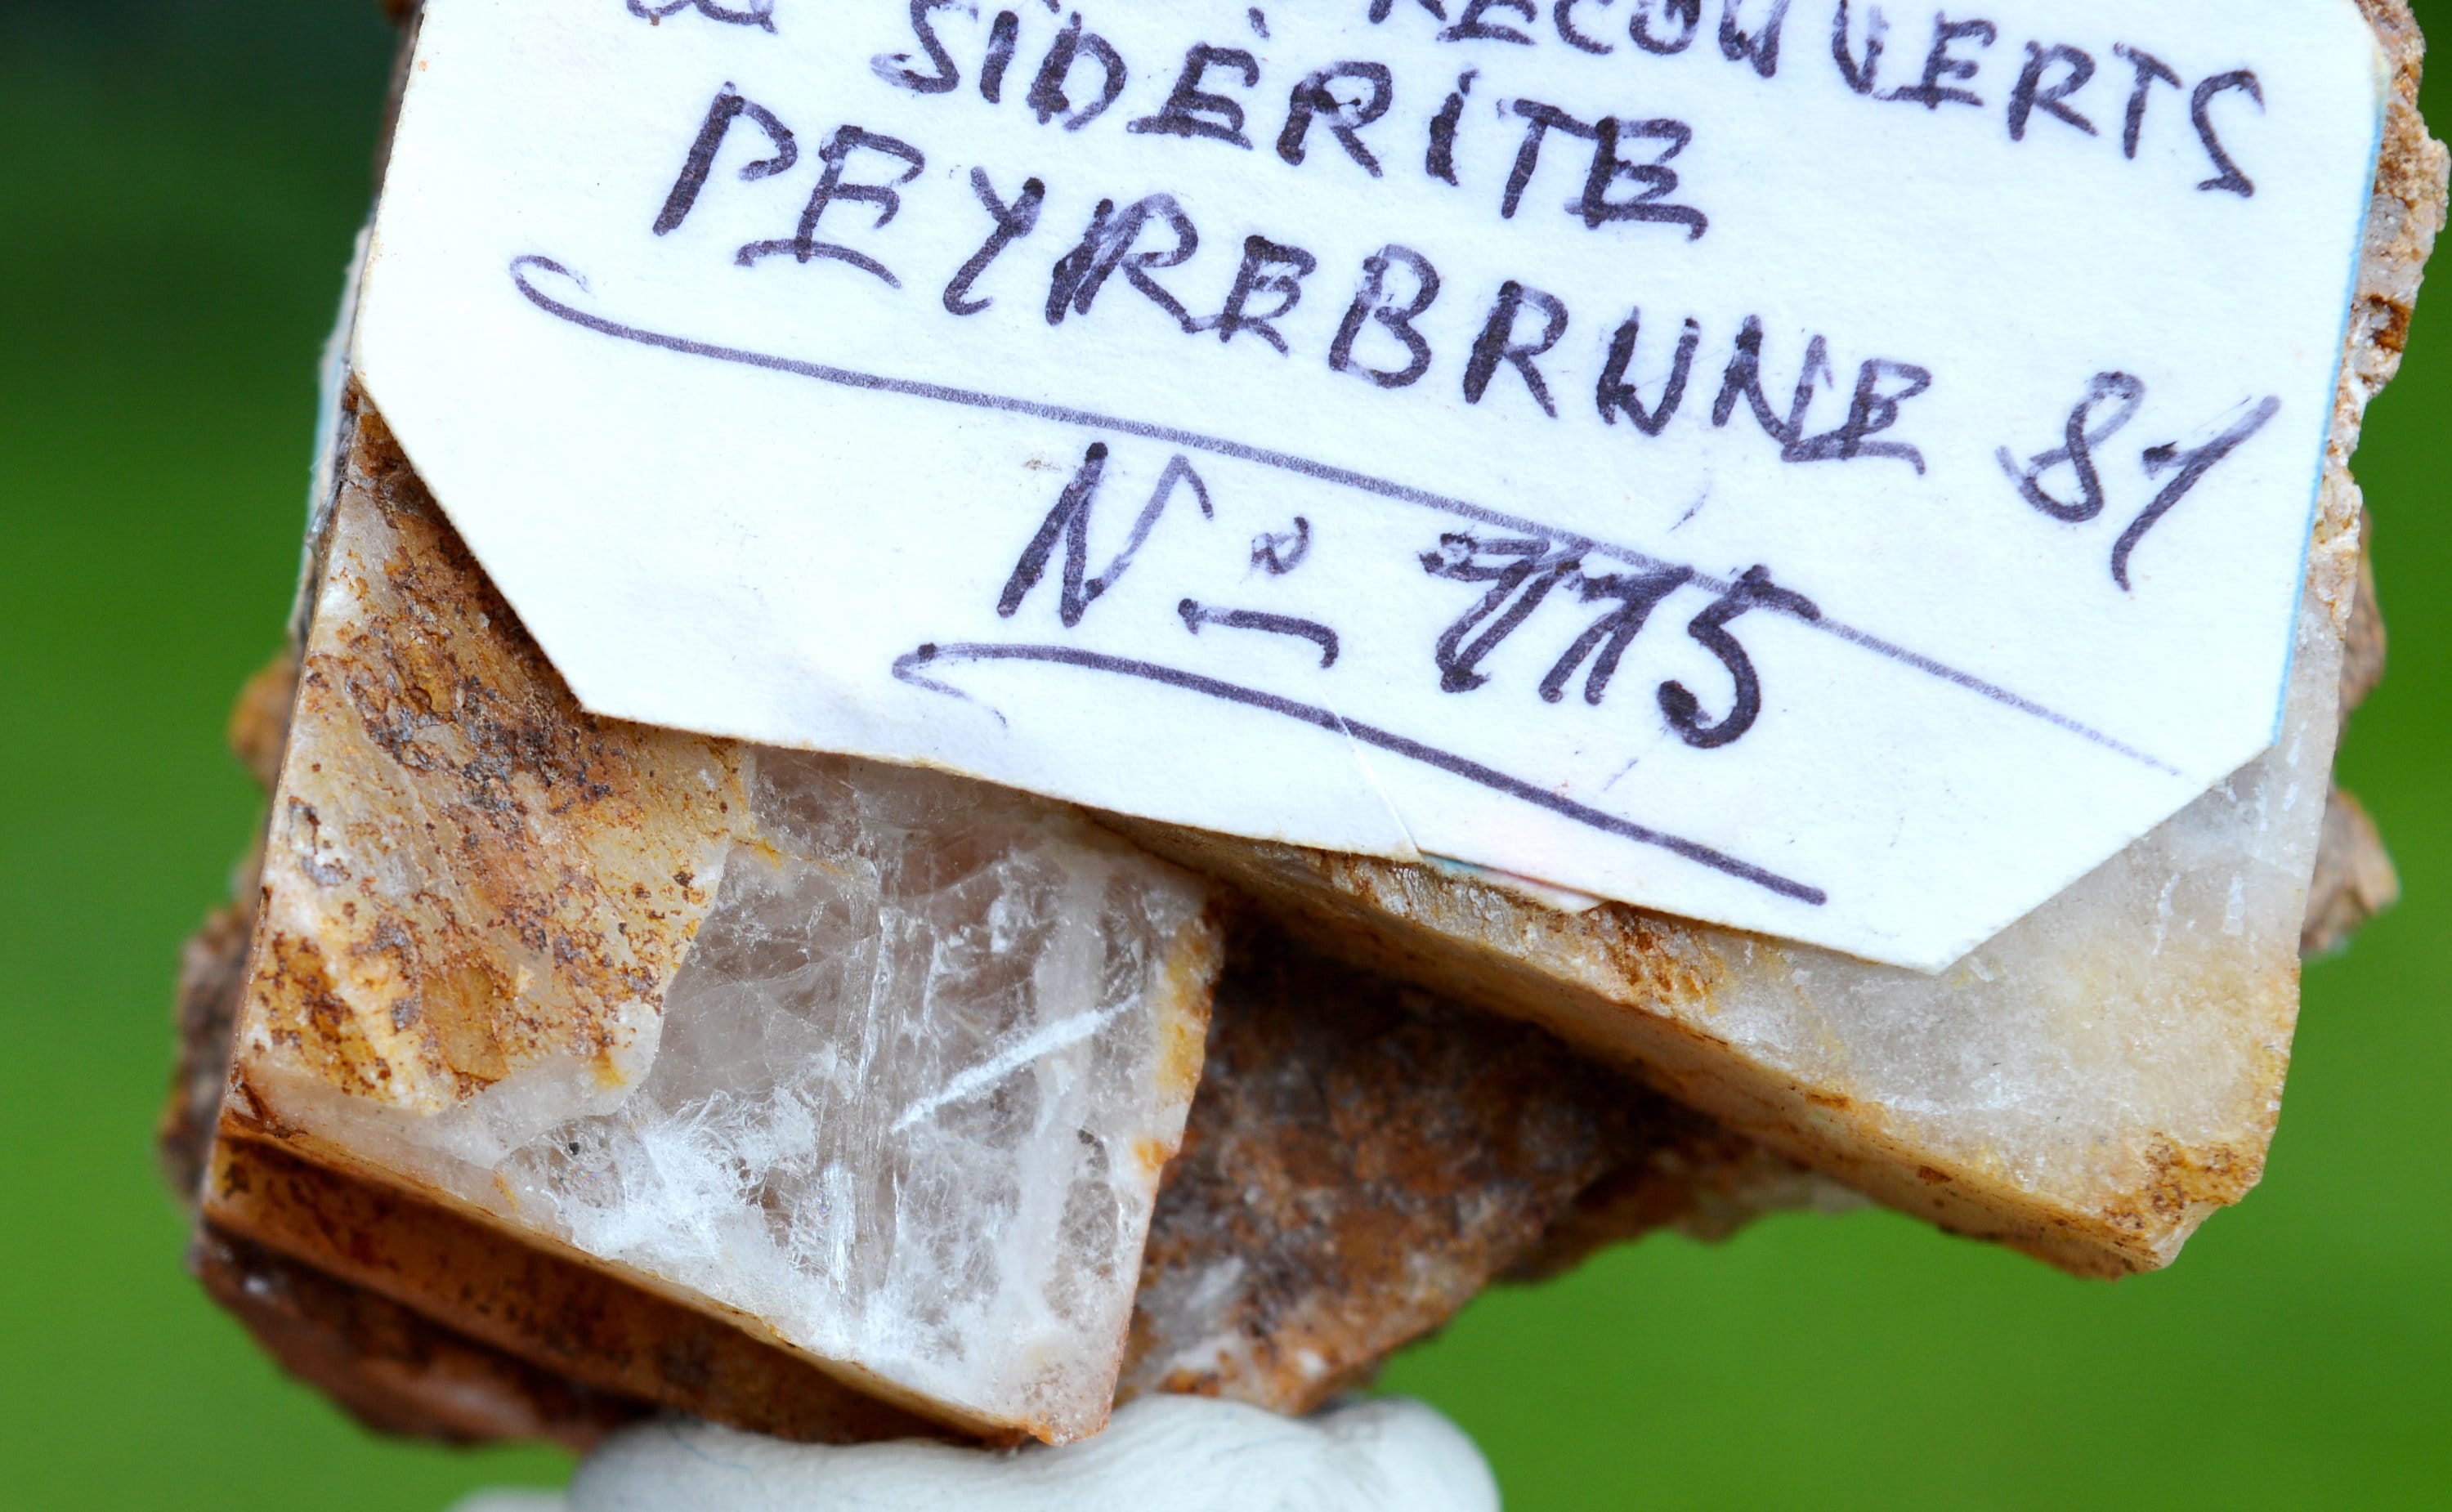 RECOUVERTS
SIDÉRITE
PEYREBRUNE 81
Nº 915